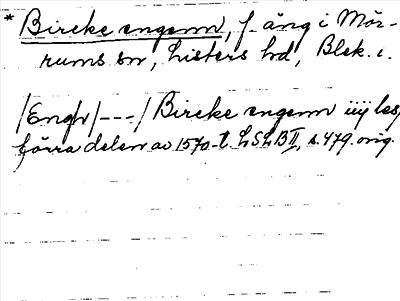 * Bircke engenn, f. äng i Mör-
rums sn, Listers hd, Blek. l.
/Engh/---/ Bircke engenn iiij les,
förra delen av 1570-t. LSLB II, s. 479. orig.